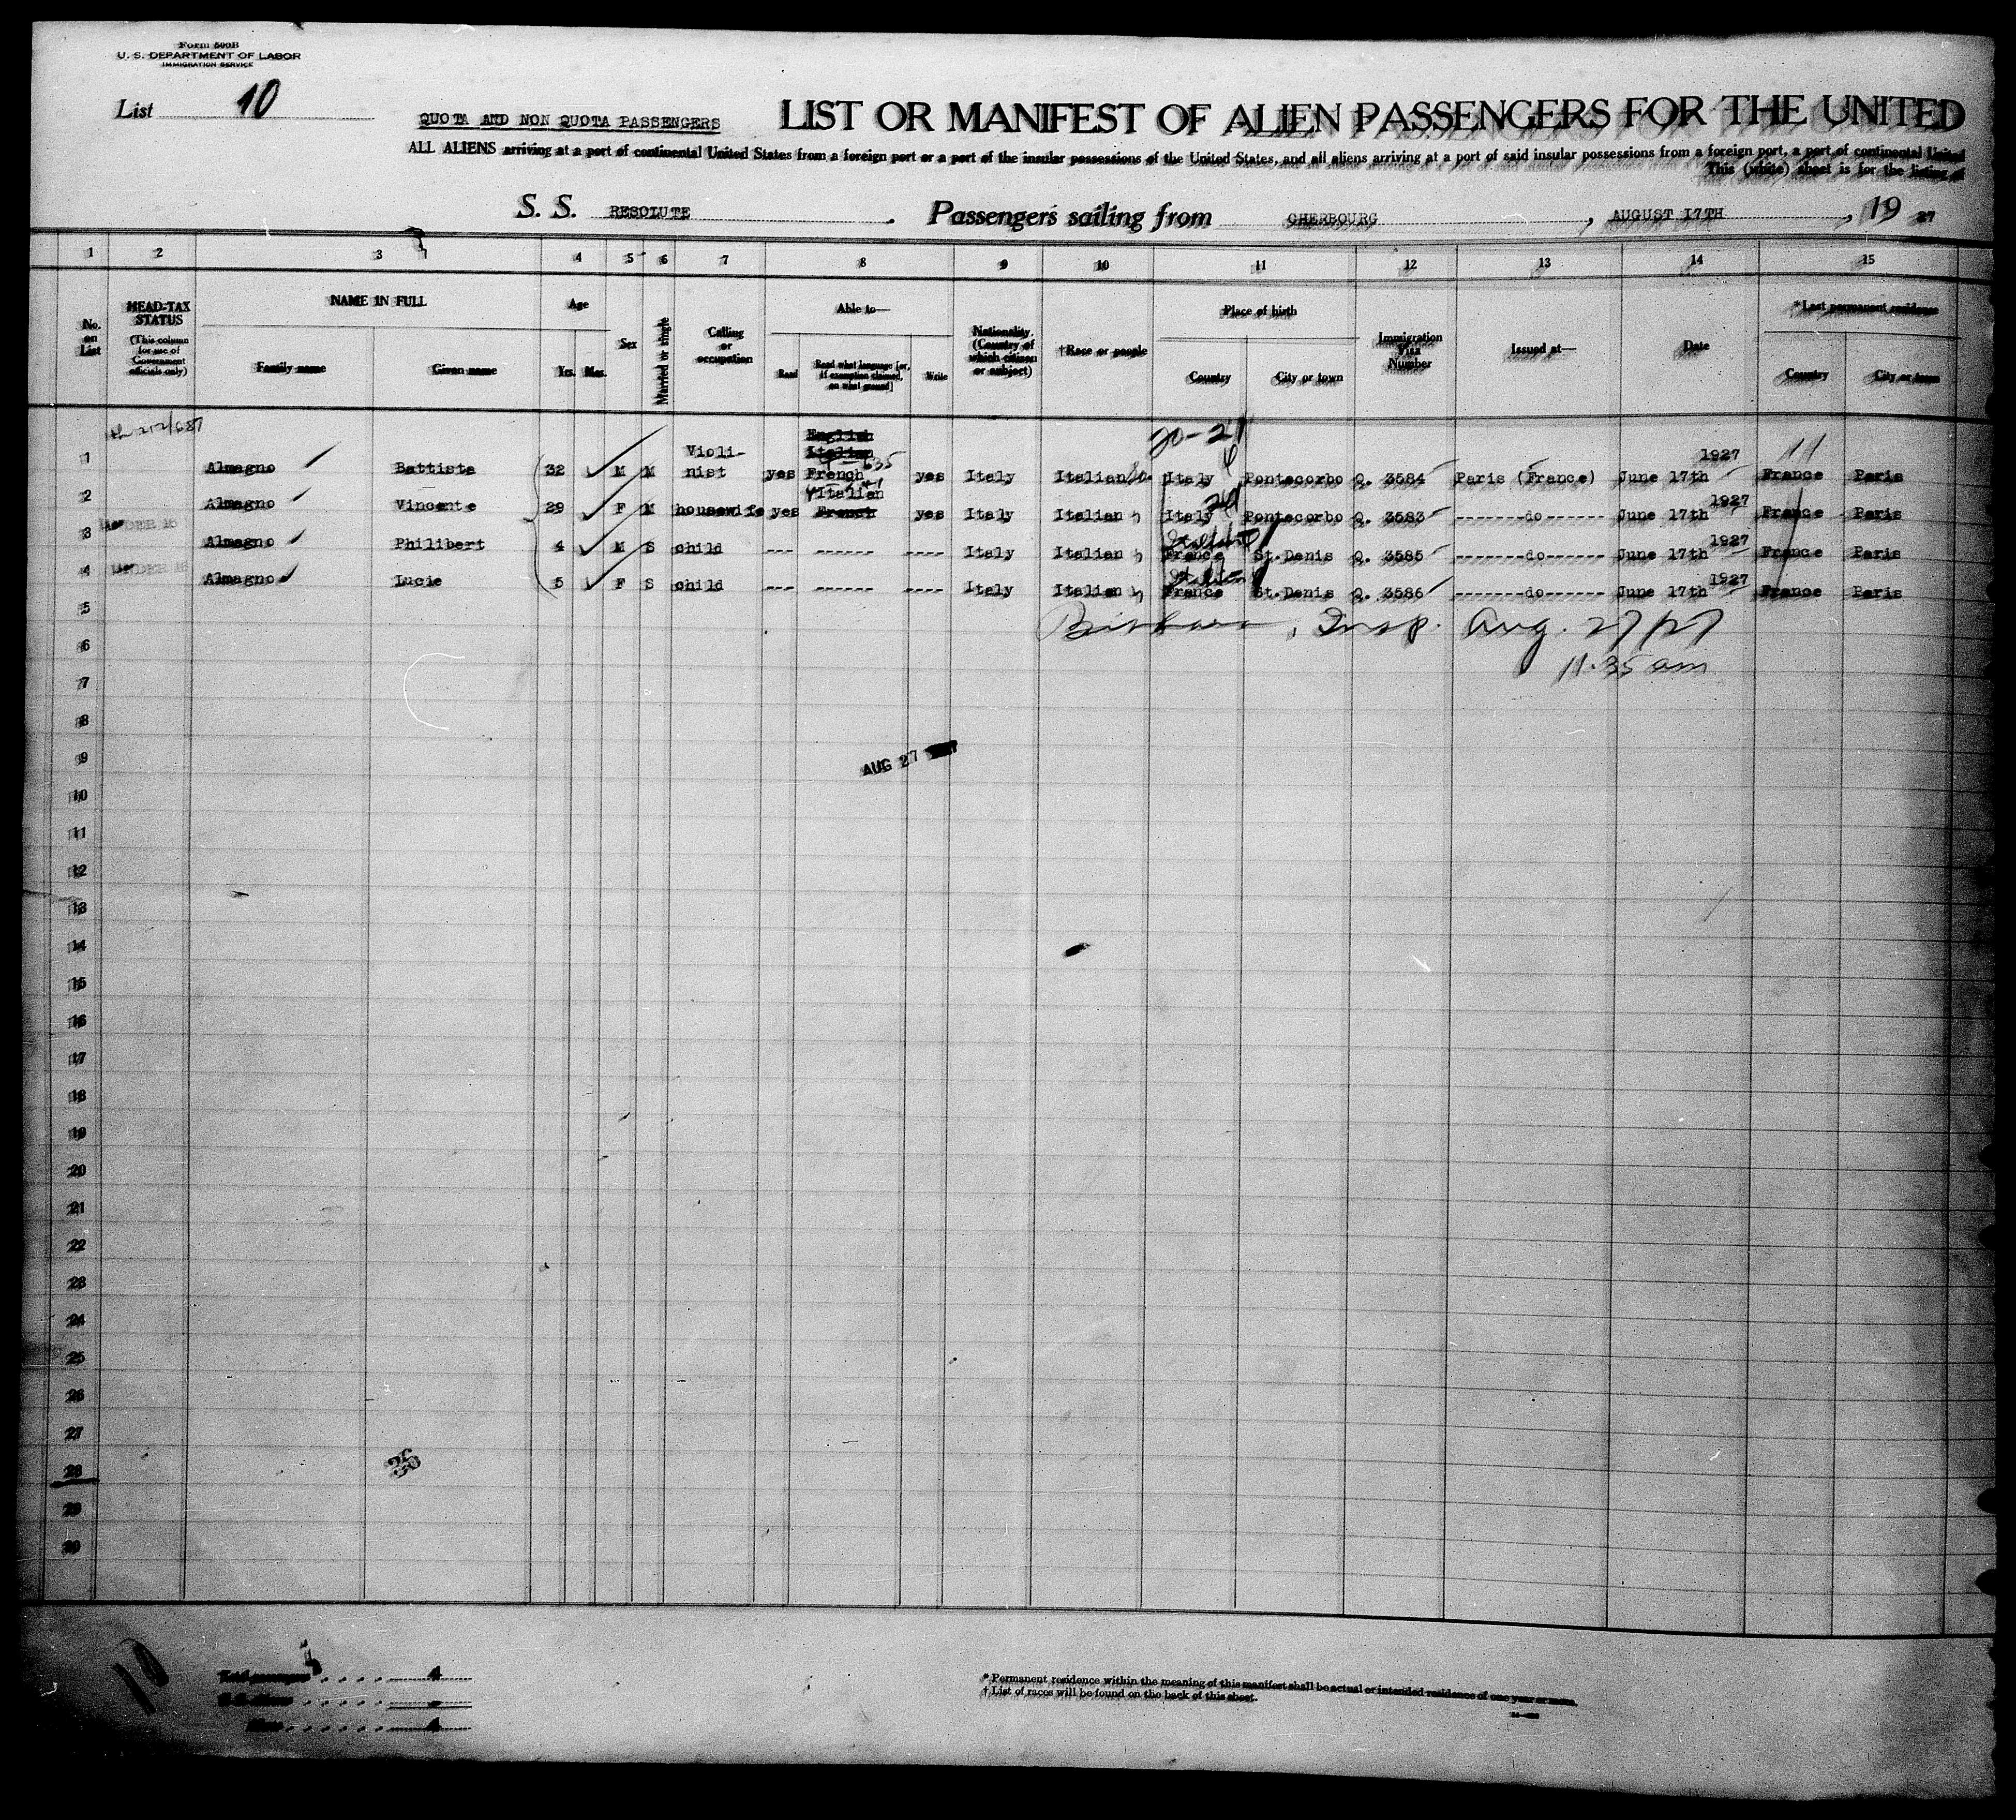 Form 500B
U. S. DEPARTMENT OF LABOR
IMMIGRATION SERVICE
List 10
QUOTA AND NON QUOTA PASSENGERS
LIST OR MANIFEST OF ALIEN PASSENGERS FOR THE UNITED
ALL ALIENS arriving at a port of continental United States from a foreign port or a port of the insular possessions of the United States, and all aliens arriving at a port of said insular possessions from a foreign port, a port of continental United
This (white) sheet is for the listing of
S. S. RESOLUTE. Passengers sailing from CHERBOURG, AUGUST 17TH, 19 27
1 2 3 4 5 6 7 8 9 10 11 12 13 14 15
No. on List
HEAD-TAX STATUS (This column for use of Government officials only)
NAME IN FULL
Family name Given name
Age
Yrs. Mos.
Sex
Married or single
Calling or occupation
Able to—
Read Read what language [or, if exemption claimed, on what ground] Write
Nationality. (Country of which citizen or subject)
†Race or people
Place of birth
Country City or town
Immigration Visa Number
Issued at—
Date
*Last permanent residence
Country City or town
20-21
English
Italian
1 Almagno Battista 32 M M Violinist yes French yes Italy Italian Italy Pontecorbo Q. 3584 Paris (France) June 17th 1927 France Paris
Italian
2 Almagno Vincente 29 F M housewife yes French yes Italy Italian Italy Pontecorbo Q. 3583 -------do------ June 17th 1927 France Paris
3 UNDER 16 Almagno Philibert 4 M S child --- ------ ---- Italy Italian France St.Denis Q. 3585 -------do------ June 17th 1927 France Paris
4 UNDER 16 Almagno Lucie 5 F S child --- ------ ---- Italy Italian France St.Denis Q. 3586 -------do------ June 17th 1927 France Paris
5
Insp. Aug. 27/27
6
11.35 am
7
8
9
AUG 27
10
11
12
13
14
15
16
17
18
19
20
21
22
23
24
25
26
27
28
29
30
26
10
Total passengers . . . . 4
U. S. citizens . . . . -
Aliens . . . . . . 4
* Permanent residence within the meaning of this manifest shall be actual or intended residence of one year or more.
† List of races will be found on the back of this sheet.